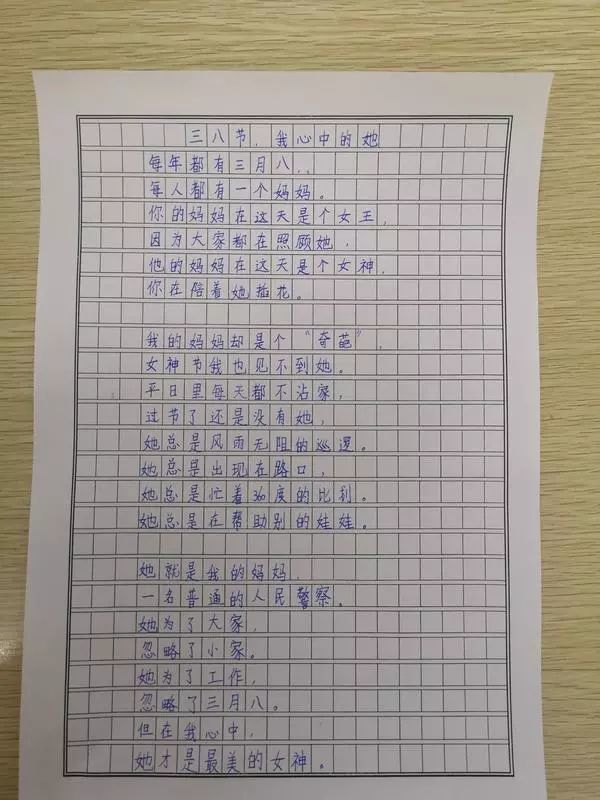 三八节，我心中的她
每年都有三月八，
每人都有一个妈妈。
你的妈妈在这天是个女王，
因为大家都在照顾她，
他的妈妈在这天是个女神，
你在陪着她插花。
我的妈妈却是个“奇葩”，
女神节我也见不到她。
平日里每天都不沾家，
过节了还是没有她，
她总是风雨无阻的巡逻。
她总是出现在路口，
她总是忙着360度的比利。
她总是在帮助别的娃娃。
她就是我的妈妈，
一名普通的人民警察。
她为了大家，
忽略了小家。
她为了工作，
忽略了三月八。
但在我心中，
她才是最美的女神。